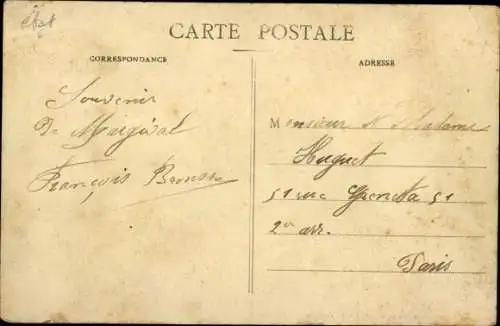 État
CARTE POSTALE
CORRESPONDANCE
ADRESSE
Souvenir
De Margival
François Brousse
Monsieur et Madame
Huguet
51 rue Greneta 51
2e arr.
Paris